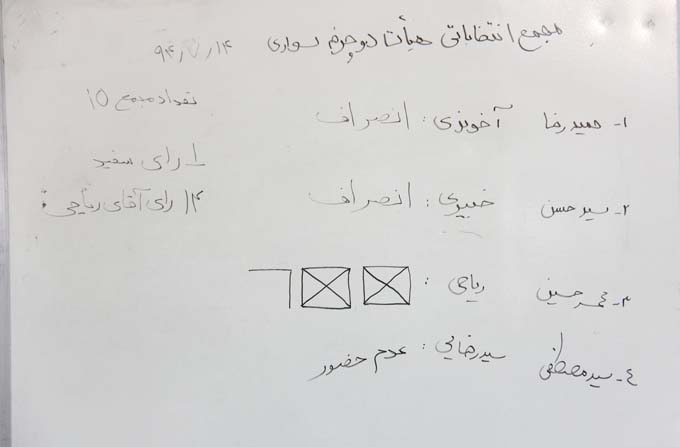 مجمع انتخاباتی هیأت دوچرخه سواری ۹۴/۷/۱۴
تعداد مجمع ۱۵
۱- حمیدرضا آخوندی: انصراف
۱ رای سفید
۱۴ رای آقای ریاحی:
۲- سید حسن خبیری: انصراف
۳- محمد حسین ریاحی:
۴- سید مصطفی سیدرضایی: عدم حضور